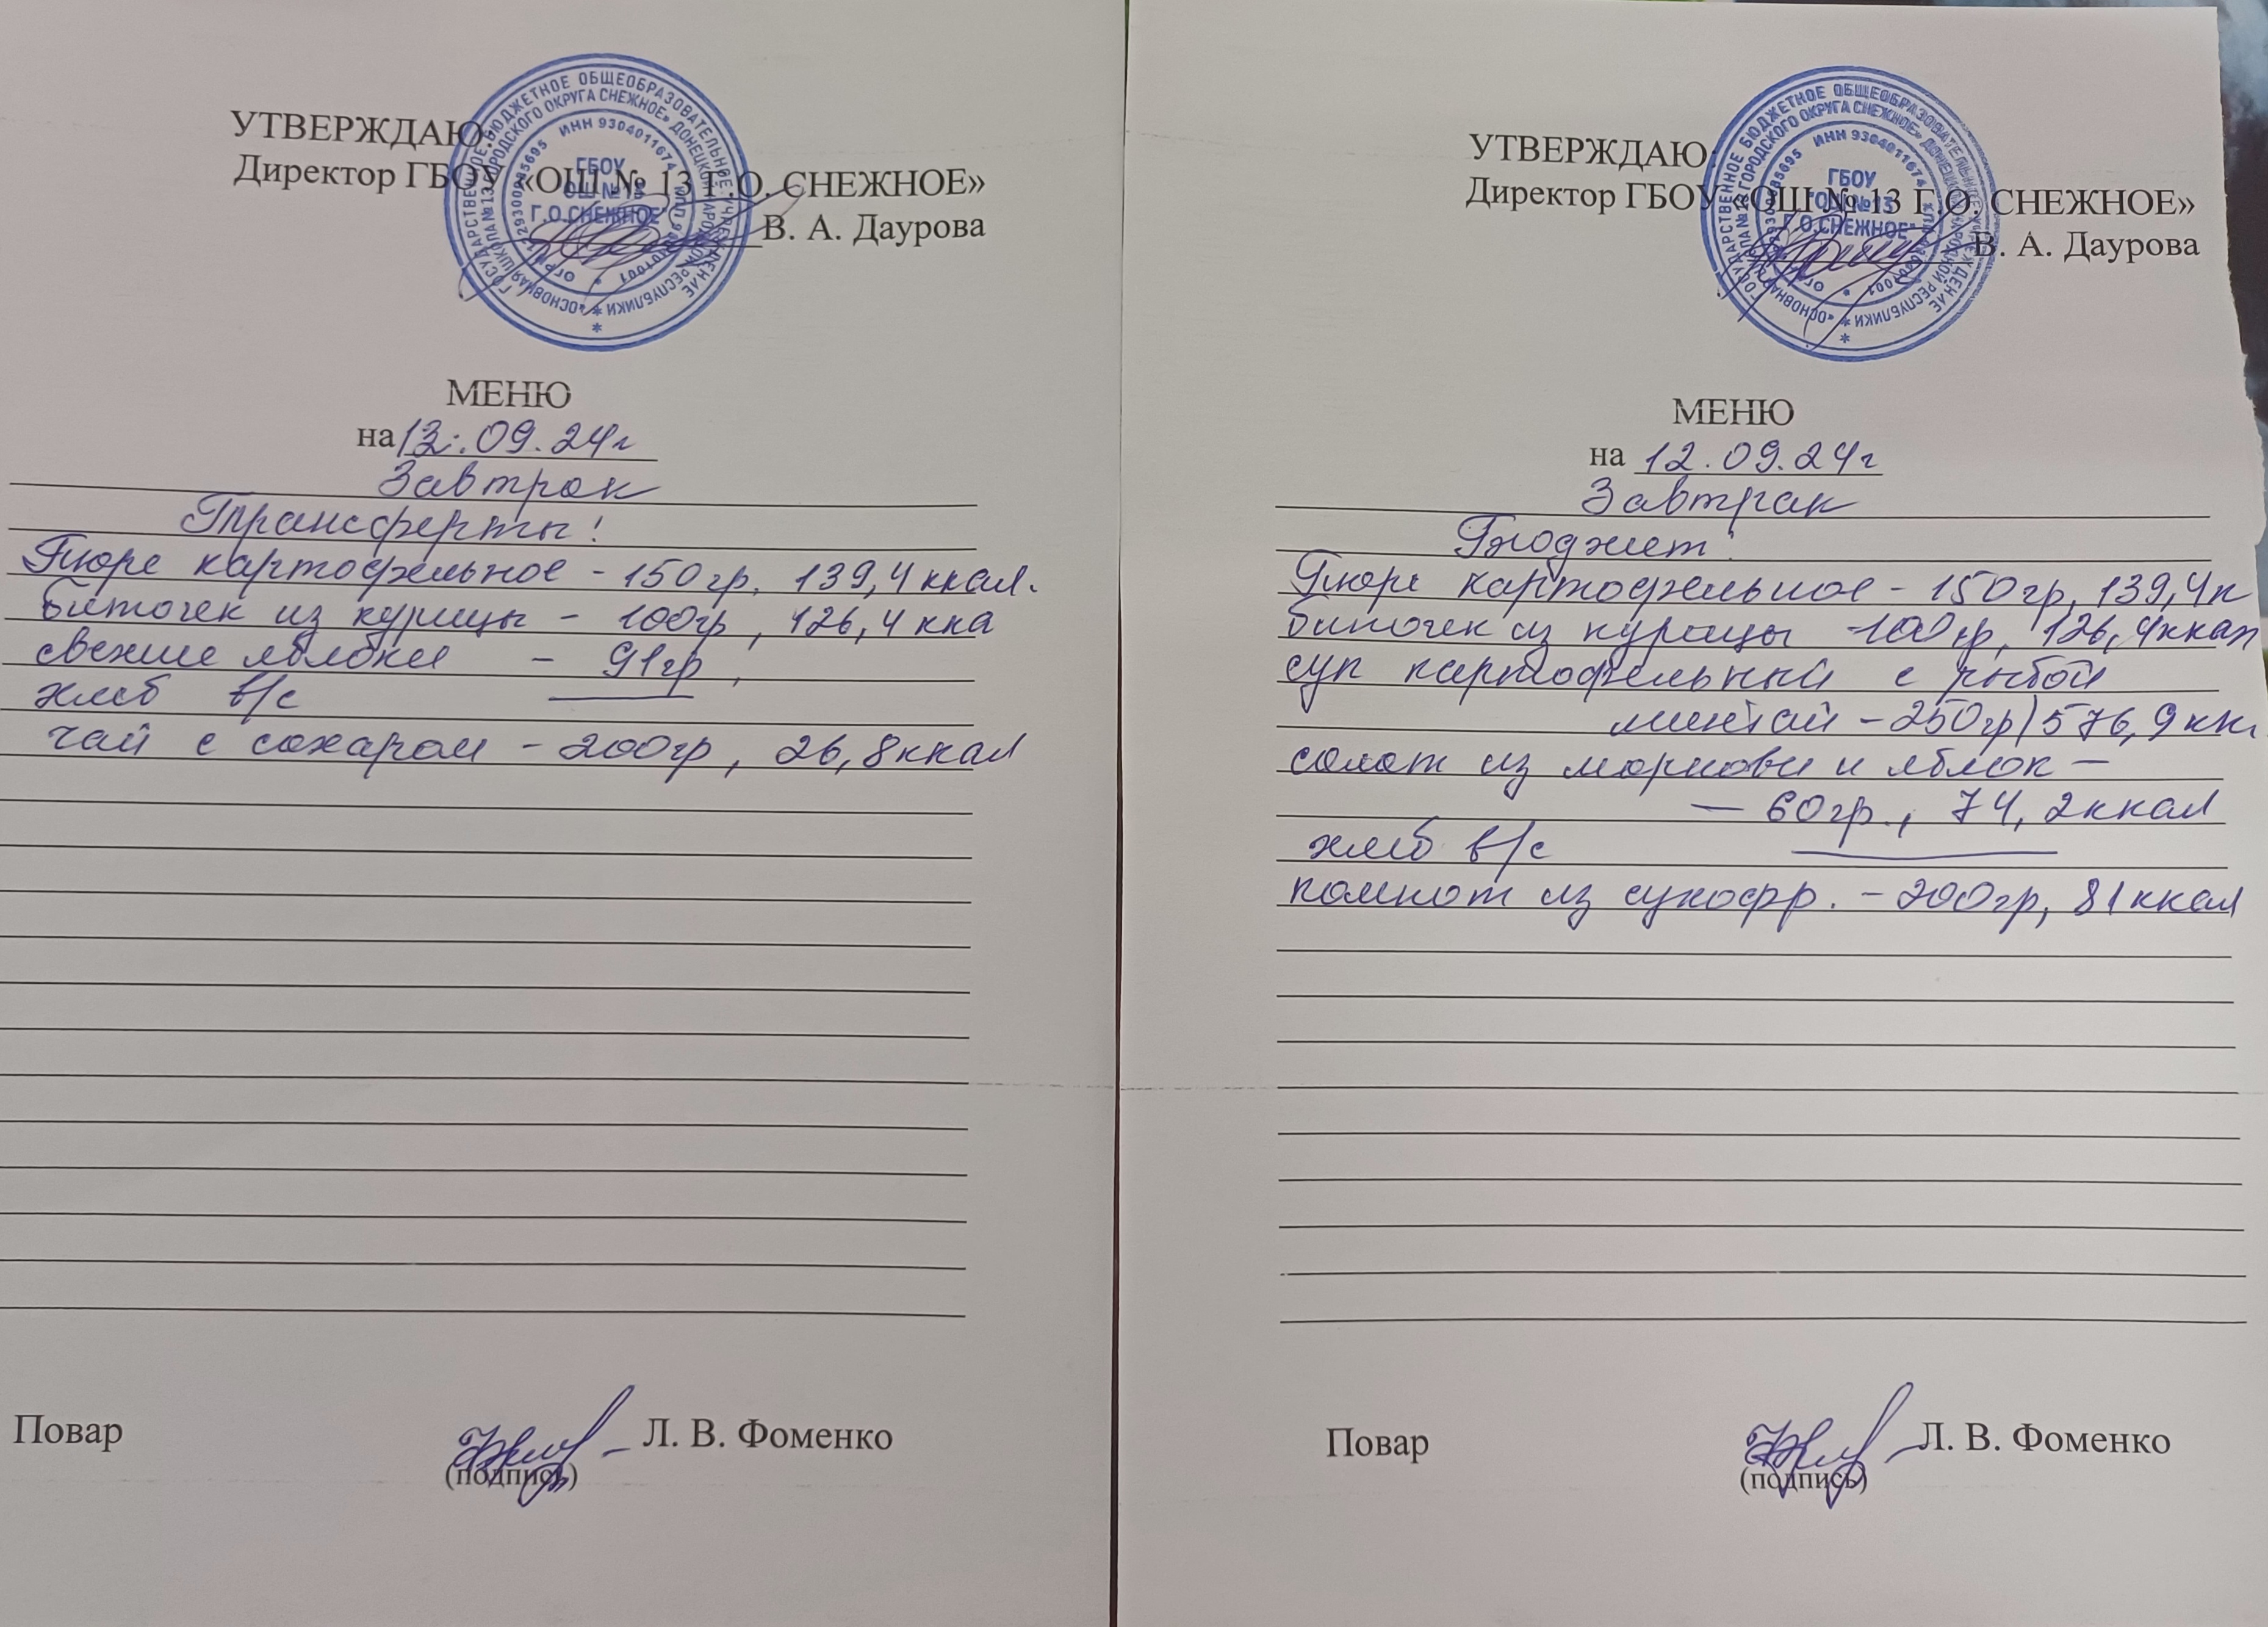 УТВЕРЖДАЮ:
Директор ГБОУ «ОШ № 13 Г.О. СНЕЖНОЕ»
В. А. Даурова
ГОСУДАРСТВЕННОЕ БЮДЖЕТНОЕ ОБЩЕОБРАЗОВАТЕЛЬНОЕ УЧРЕЖДЕНИЕ
«ОСНОВНАЯ ШКОЛА №13 ГОРОДСКОГО ОКРУГА СНЕЖНОЕ» ДОНЕЦКОЙ НАРОДНОЙ РЕСПУБЛИКИ
ИНН 9304011674
ГБОУ
ОШ № 13
Г.О.СНЕЖНОЕ"
МЕНЮ
на 12.09.24г
Завтрак
Трансферты:
Пюре картофельное - 150гр, 139,4 ккал.
биточек из курицы - 100гр, 126,4 кка
свежие яблоки - 91гр,
хлеб в/с
чай с сахаром - 200гр, 26,8ккал
Повар
Л. В. Фоменко
(подпись)
УТВЕРЖДАЮ:
Директор ГБОУ «ОШ № 13 Г.О. СНЕЖНОЕ»
В. А. Даурова
ГОСУДАРСТВЕННОЕ БЮДЖЕТНОЕ ОБЩЕОБРАЗОВАТЕЛЬНОЕ УЧРЕЖДЕНИЕ
«ОСНОВНАЯ ШКОЛА №13 ГОРОДСКОГО ОКРУГА СНЕЖНОЕ» ДОНЕЦКОЙ НАРОДНОЙ РЕСПУБЛИКИ
ИНН 9304011674
ГБОУ
"ОШ № 13
Г.О.СНЕЖНОЕ"
МЕНЮ
на 12.09.24г
Завтрак
Бюджет:
Пюре картофельное - 150гр, 139,4к
биточек из курицы - 100гр, 126,4ккал
суп картофельный с рыбой
минтай - 250гр, 576,9кк
салат из моркови и яблок -
- 60гр., 74,2ккал
хлеб в/с
компот из сухофр. - 200гр, 81ккал
Повар
Л. В. Фоменко
(подпись)